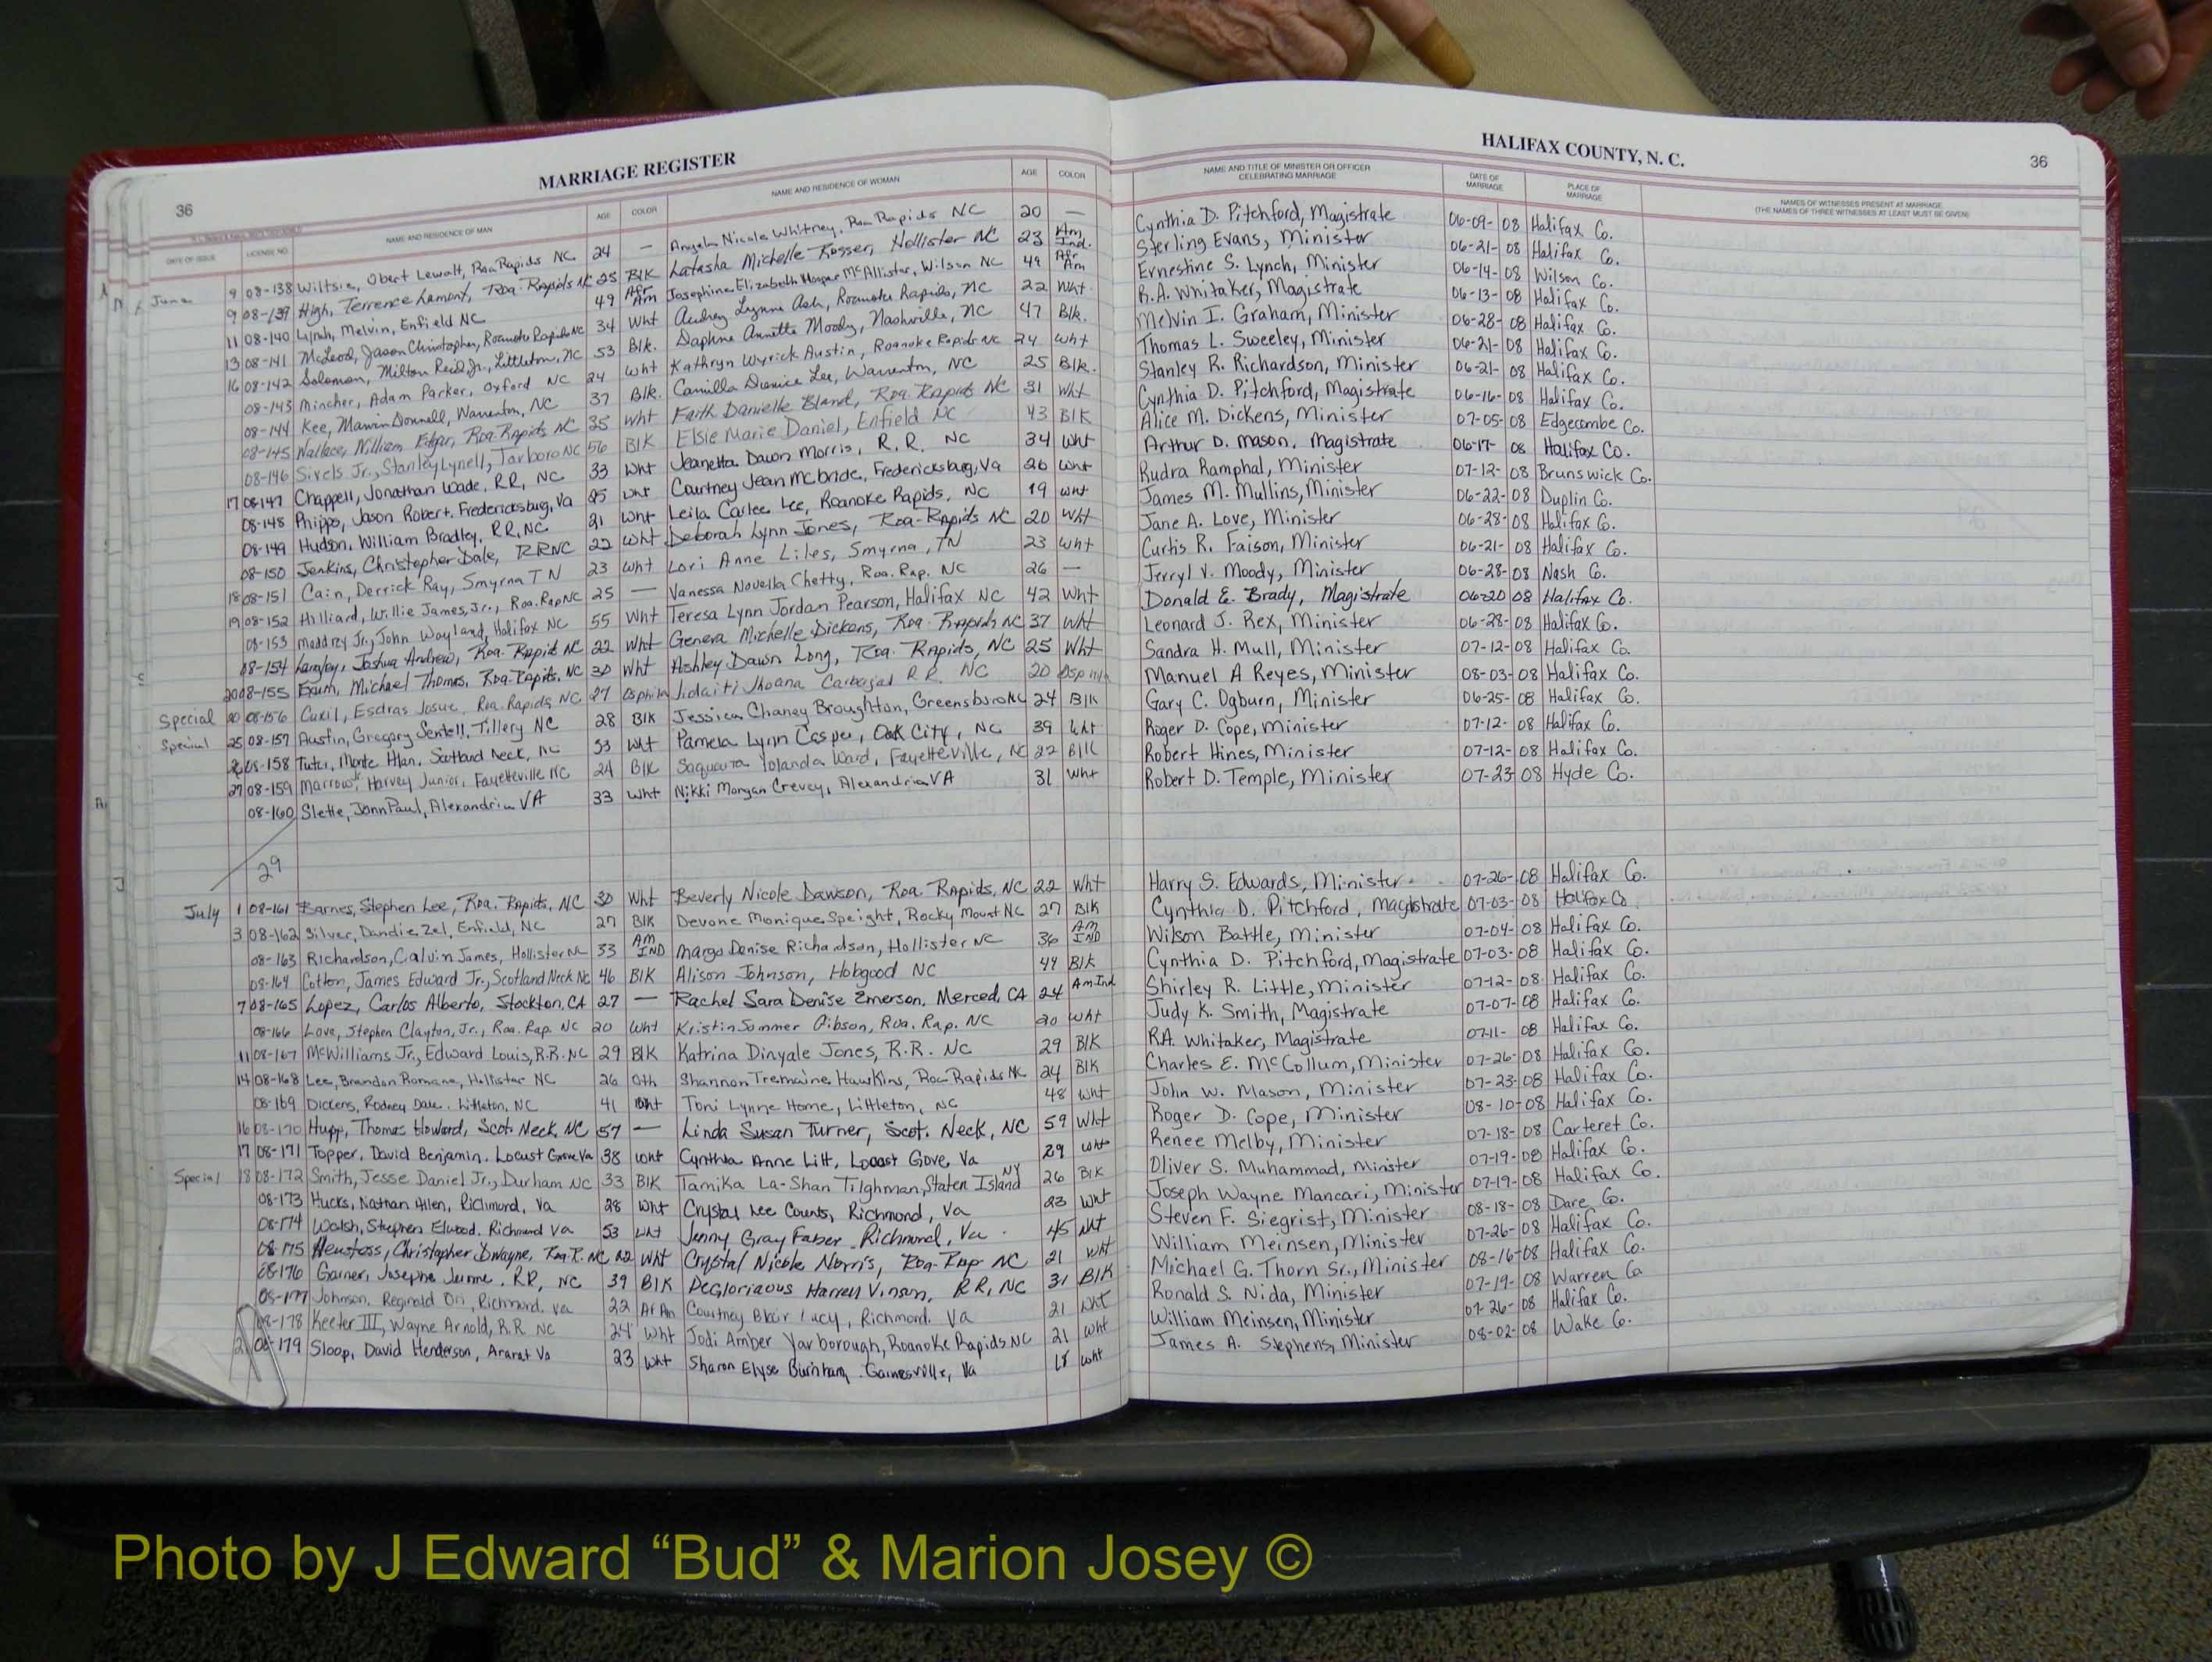 MARRIAGE REGISTER
HALIFAX COUNTY, N. C.
36
36
DATE OF ISSUE LICENSE NO. NAME AND RESIDENCE OF MAN AGE COLOR NAME AND RESIDENCE OF WOMAN AGE COLOR NAME AND TITLE OF MINISTER OR OFFICER CELEBRATING MARRIAGE DATE OF MARRIAGE PLACE OF MARRIAGE NAMES OF WITNESSES PRESENT AT MARRIAGE (THE NAMES OF THREE WITNESSES AT LEAST MUST BE GIVEN)
June 9 08-138 Wiltsie, Obert Lewalt, Roa Rapids NC 24 — Angela Nicole Whitney, Roa Rapids NC 20 — Cynthia D. Pitchford, Magistrate 06-09-08 Halifax Co.
9 08-139 High, Terrence Lamont, Roa. Rapids NC 25 Blk Latasha Michelle Rosser, Hollister NC 23 Am Ind. Sterling Evans, Minister 06-21-08 Halifax Co.
11 08-140 Lynch, Melvin, Enfield NC 49 Afr Am Josephine Elizabeth Harper McAllister, Wilson NC 49 Afr Am Ernestine S. Lynch, Minister 06-14-08 Wilson Co.
13 08-141 McLeod, Jason Christopher, Roanoke Rapids NC 34 Wht Audrey Lynne Ash, Roanoke Rapids, NC 22 Wht R.A. Whitaker, Magistrate 06-13-08 Halifax Co.
16 08-142 Solomon, Milton Reid Jr., Littleton, NC 53 Blk. Daphne Annette Moody, Nashville, NC 47 Blk. Melvin I. Graham, Minister 06-28-08 Halifax Co.
08-143 Mincher, Adam Parker, Oxford NC 24 Wht Kathryn Wyrick Austin, Roanoke Rapids NC 24 Wht Thomas L. Sweeley, Minister 06-21-08 Halifax Co.
08-144 Kee, Marvin Donnell, Warrenton, NC 37 Blk. Camilla Denice Lee, Warrenton, NC 25 Blk. Stanley R. Richardson, Minister 06-21-08 Halifax Co.
08-145 Wallace, William Edgar, Roa. Rapids NC 35 Wht Faith Danielle Bland, Roa. Rapids NC 31 Wht Cynthia D. Pitchford, Magistrate 06-16-08 Halifax Co.
08-146 Sivels Jr., Stanley Lynell, Tarboro NC 56 Blk Elsie Marie Daniel, Enfield NC 43 Blk Alice M. Dickens, Minister 07-05-08 Edgecombe Co.
17 08-147 Chappell, Jonathan Wade, RR, NC 33 Wht Jeanetta Dawn Morris, R.R. NC 34 Wht Arthur D. Mason, Magistrate 06-17-08 Halifax Co.
08-148 Phipps, Jason Robert, Fredericksburg, Va 25 Wht Courtney Jean McBride, Fredericksburg, Va 26 Wht Rudra Ramphal, Minister 07-12-08 Brunswick Co.
08-149 Hudson, William Bradley, RR, NC 21 Wht Leila Carlee Lee, Roanoke Rapids, NC 19 Wht James M. Mullins, Minister 06-22-08 Duplin Co.
08-150 Jenkins, Christopher Dale, RR NC 22 Wht Deborah Lynn Jones, Roa-Rapids NC 20 Wht Jane A. Love, Minister 06-28-08 Halifax Co.
18 08-151 Cain, Derrick Ray, Smyrna TN 23 Wht Lori Anne Liles, Smyrna, TN 23 Wht Curtis R. Faison, Minister 06-21-08 Halifax Co.
19 08-152 Hilliard, Willie James, Jr., Roa. Rap NC 25 — Vanessa Novella Chetty, Roa. Rap. NC 26 — Jerryl V. Moody, Minister 06-28-08 Nash Co.
08-153 Maddrey Jr., John Wayland, Halifax NC 55 Wht Teresa Lynn Jordan Pearson, Halifax NC 42 Wht Donald E. Brady, Magistrate 06-20-08 Halifax Co.
08-154 Langley, Joshua Andrew, Roa. Rapids NC 22 Wht Geneva Michelle Dickens, Roa. Rapids NC 37 Wht Leonard J. Rex, Minister 06-28-08 Halifax Co.
20 08-155 Exum, Michael Thomas, Roa. Rapids, NC 30 Wht Ashley Dawn Long, Roa. Rapids, NC 25 Wht Sandra H. Mull, Minister 07-12-08 Halifax Co.
Special 20 08-156 Cuxil, Esdras Josue, Roa. Rapids, NC 27 Jidaiti Jhoana Carbajal R.R. NC 20 Manuel A Reyes, Minister 08-03-08 Halifax Co.
Special 25 08-157 Austin, Gregory Sentell, Tillery NC 28 Blk Jessica Chaney Broughton, Greensboro NC 24 Blk Gary C. Ogburn, Minister 06-25-08 Halifax Co.
08-158 Tuter, Monte Alan, Scotland Neck, NC 53 Wht Pamela Lynn Casper, Oak City, NC 39 Wht Roger D. Cope, Minister 07-12-08 Halifax Co.
27 08-159 Marrow, Harvey Junior, Fayetteville NC 24 Blk Saquoura Yolanda Ward, Fayetteville, NC 22 Blk Robert Hines, Minister 07-12-08 Halifax Co.
08-160 Slette, John Paul, Alexandria VA 33 Wht Nikki Morgan Crevey, Alexandria VA 31 Wht Robert D. Temple, Minister 07-23-08 Hyde Co.
29
July 1 08-161 Barnes, Stephen Lee, Roa. Rapids, NC 30 Wht Beverly Nicole Dawson, Roa. Rapids, NC 22 Wht Harry S. Edwards, Minister 07-26-08 Halifax Co.
3 08-162 Silver, Dandie Zel, Enfield, NC 27 Blk Devone Monique Speight, Rocky Mount NC 27 Blk Cynthia D. Pitchford, Magistrate 07-03-08 Halifax Co
08-163 Richardson, Calvin James, Hollister NC 33 Am IND Margo Denise Richardson, Hollister NC 36 Am IND Wilson Battle, Minister 07-04-08 Halifax Co.
08-164 Cotton, James Edward Jr., Scotland Neck NC 46 Blk Alison Johnson, Hobgood NC 44 Blk Cynthia D. Pitchford, Magistrate 07-03-08 Halifax Co.
7 08-165 Lopez, Carlos Alberto, Stockton, CA 27 — Rachel Sara Denise Emerson, Merced, CA 24 Am Ind Shirley R. Little, Minister 07-12-08 Halifax Co.
08-166 Love, Stephen Clayton, Jr., Roa. Rap. NC 20 Wht Kristin Sommer Gibson, Roa. Rap. NC 20 Wht Judy K. Smith, Magistrate 07-07-08 Halifax Co.
11 08-167 McWilliams Jr., Edward Louis, R.R. NC 29 Blk Katrina Dinyale Jones, R.R. NC 29 Blk R.A. Whitaker, Magistrate 07-11-08 Halifax Co.
14 08-168 Lee, Brandon Romane, Hollister NC 26 Oth Shannon Tremaine Hawkins, Roa Rapids NC 24 Blk Charles E. McCollum, Minister 07-26-08 Halifax Co.
08-169 Dickens, Rodney Dale, Littleton, NC 41 Wht Toni Lynne Horne, Littleton, NC 48 Wht John W. Mason, Minister 07-23-08 Halifax Co.
16 08-170 Hupp, Thomas Howard, Scot. Neck, NC 57 — Linda Susan Turner, Scot. Neck, NC 59 Wht Roger D. Cope, Minister 08-10-08 Halifax Co.
17 08-171 Topper, David Benjamin, Locust Grove Va 38 Wht Cynthia Anne Litt, Locust Grove, Va 29 Wht Renee Melby, Minister 07-18-08 Carteret Co.
Special 18 08-172 Smith, Jesse Daniel Jr., Durham NC 33 Blk Tamika La-Shan Tilghman, Staten Island NY 26 Blk Oliver S. Muhammad, Minister 07-19-08 Halifax Co.
08-173 Hucks, Nathan Allen, Richmond, Va 28 Wht Crystal Lee Counts, Richmond, Va 23 Wht Joseph Wayne Mancari, Minister 07-19-08 Halifax Co.
08-174 Walsh, Stephen Elwood, Richmond Va 53 Wht Jenny Gray Faber, Richmond, Va 45 Wht Steven F. Siegrist, Minister 08-18-08 Dare Co.
08-175 Heustess, Christopher Dwayne, Roa. R. NC 22 Wht Crystal Nicole Norris, Roa-Rap NC 21 Wht William Meinsen, Minister 07-26-08 Halifax Co.
08-176 Garner, Josephe Jerme, RR, NC 39 Blk DeGloriaous Harrell Vinson, RR, NC 31 Blk Michael G. Thorn Sr., Minister 08-16-08 Halifax Co.
08-177 Johnson, Reginald Ori, Richmond, Va 22 Af Am Courtney Blair Lucy, Richmond, Va 21 Wht Ronald S. Nida, Minister 07-19-08 Warren Co
08-178 Keeter III, Wayne Arnold, R.R. NC 24 Wht Jodi Amber Yarborough, Roanoke Rapids NC 21 Wht William Meinsen, Minister 07-26-08 Halifax Co.
08-179 Sloop, David Henderson, Ararat Va 23 Wht Sharon Elyse Burnham, Gainesville, Va 18 Wht James A. Stephens, Minister 08-02-08 Wake Co.
Photo by J Edward “Bud” & Marion Josey ©